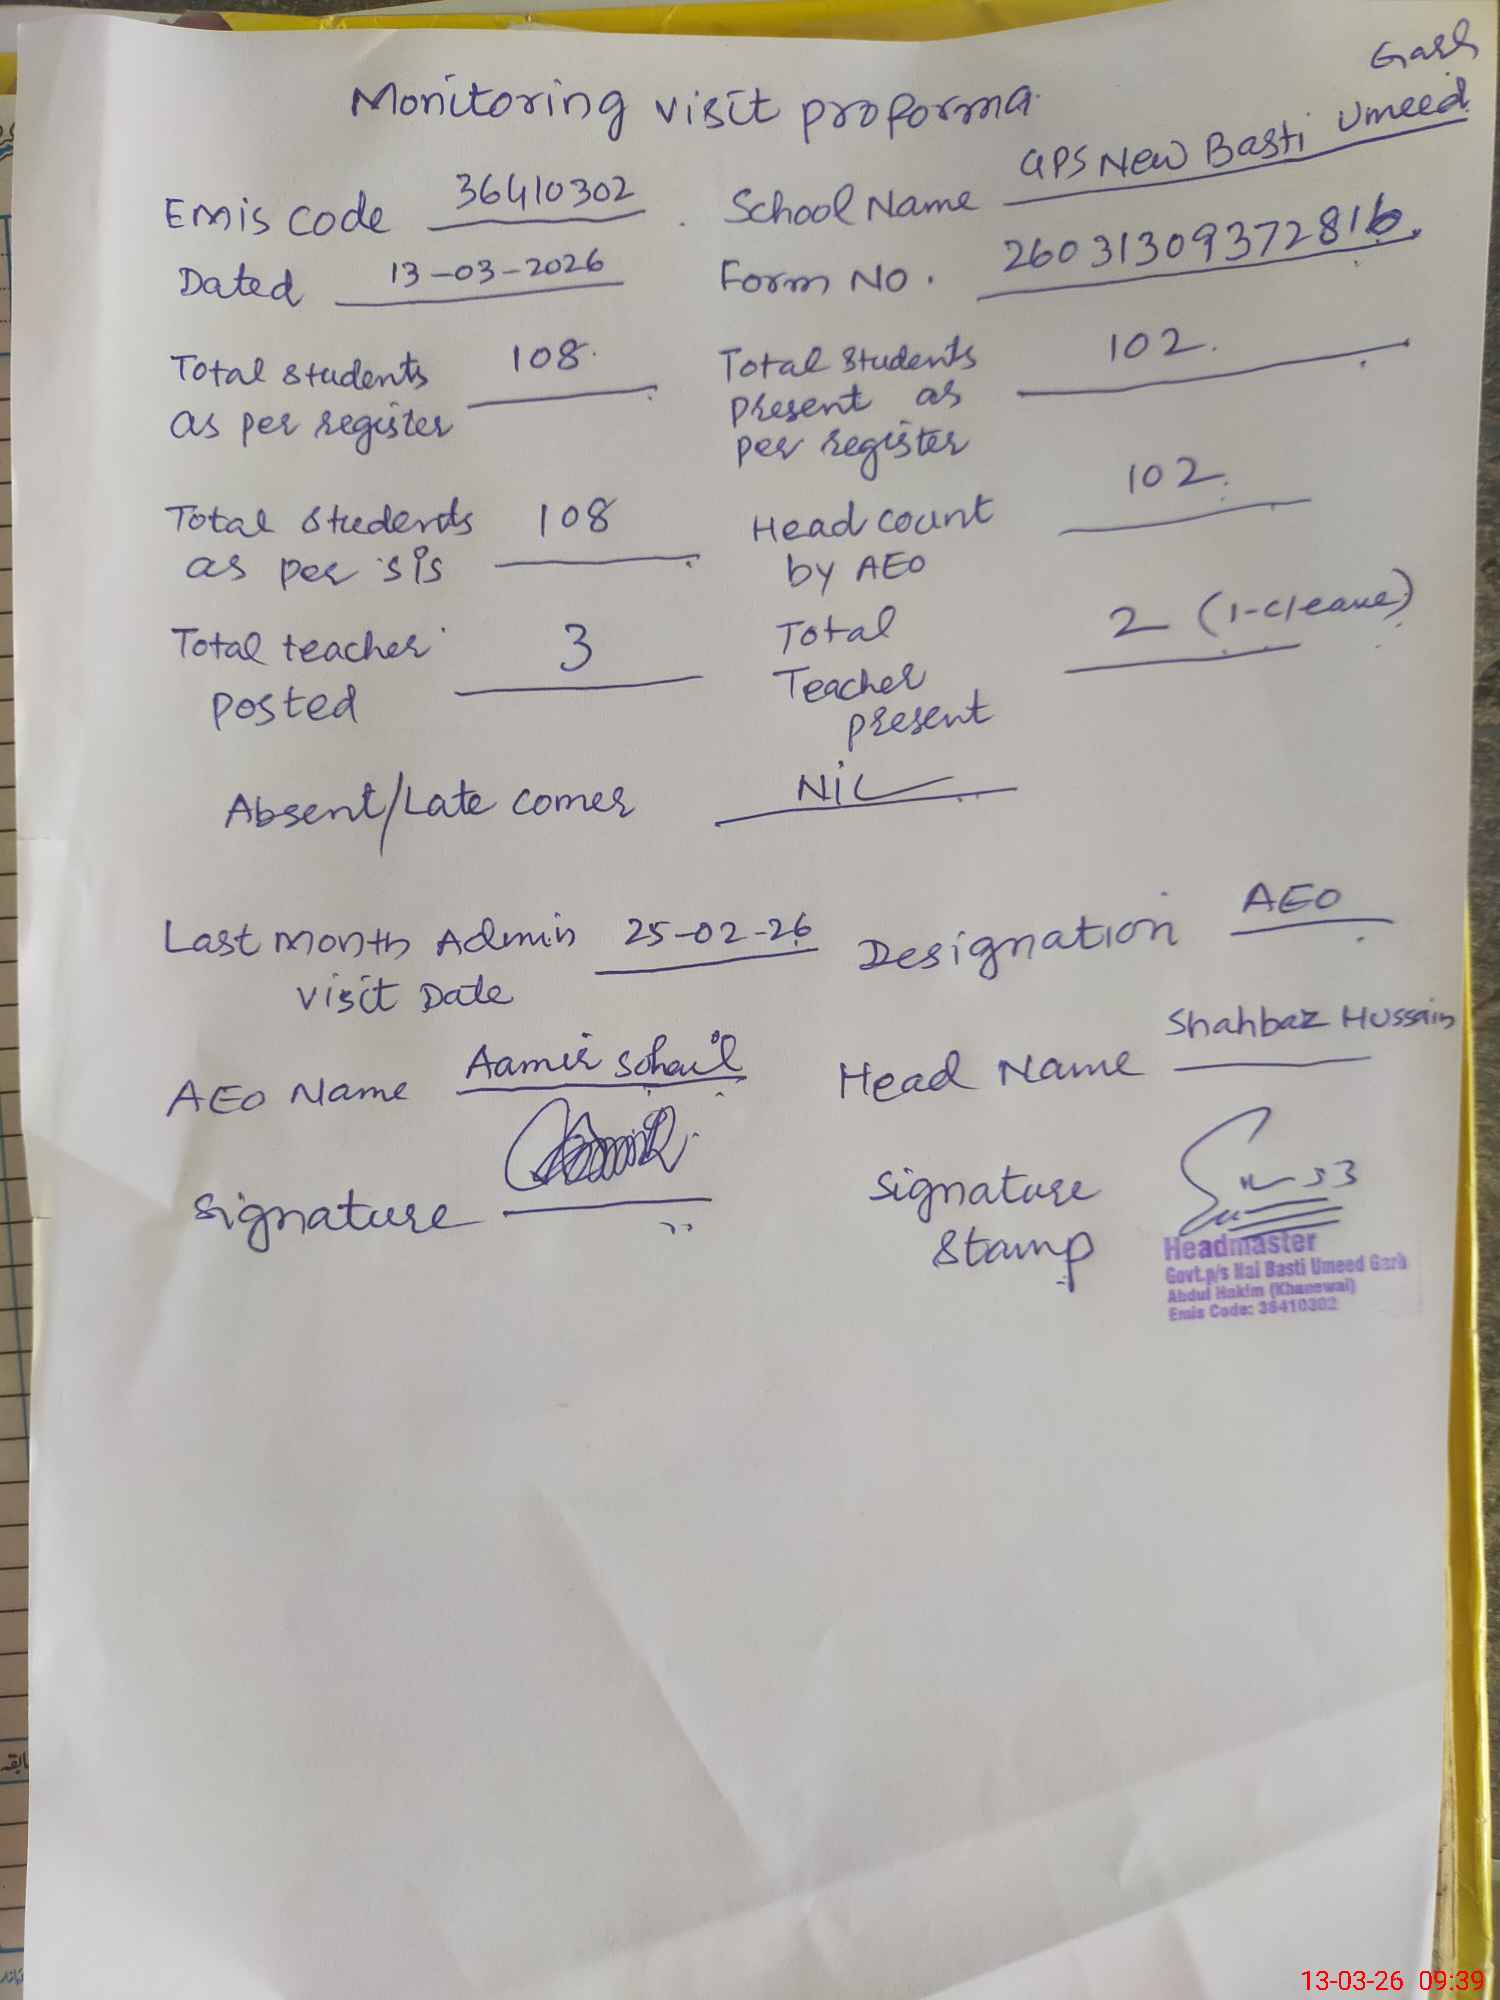 Monitoring visit proforma
Emis code 36410302 School Name GPS New Basti Umeed Garh
Dated 13-03-2026 Form No. 26031309372816
Total students as per register 108 Total students present as per register 102
Total students as per sis 108 Head count by AEO 102
Total teacher posted 3 Total Teacher present 2 (1-cleave)
Absent/Late comer Nil
Last month Admin visit Date 25-02-26 Designation AEO
AEO Name Aamir Sohail Head Name Shahbaz Hussain
Signature Signature Stamp
Headmaster
Govt.p/s Nai Basti Umeed Garh
Abdul Hakim (Khanewal)
Emis Code: 36410302
13-03-26 09:39